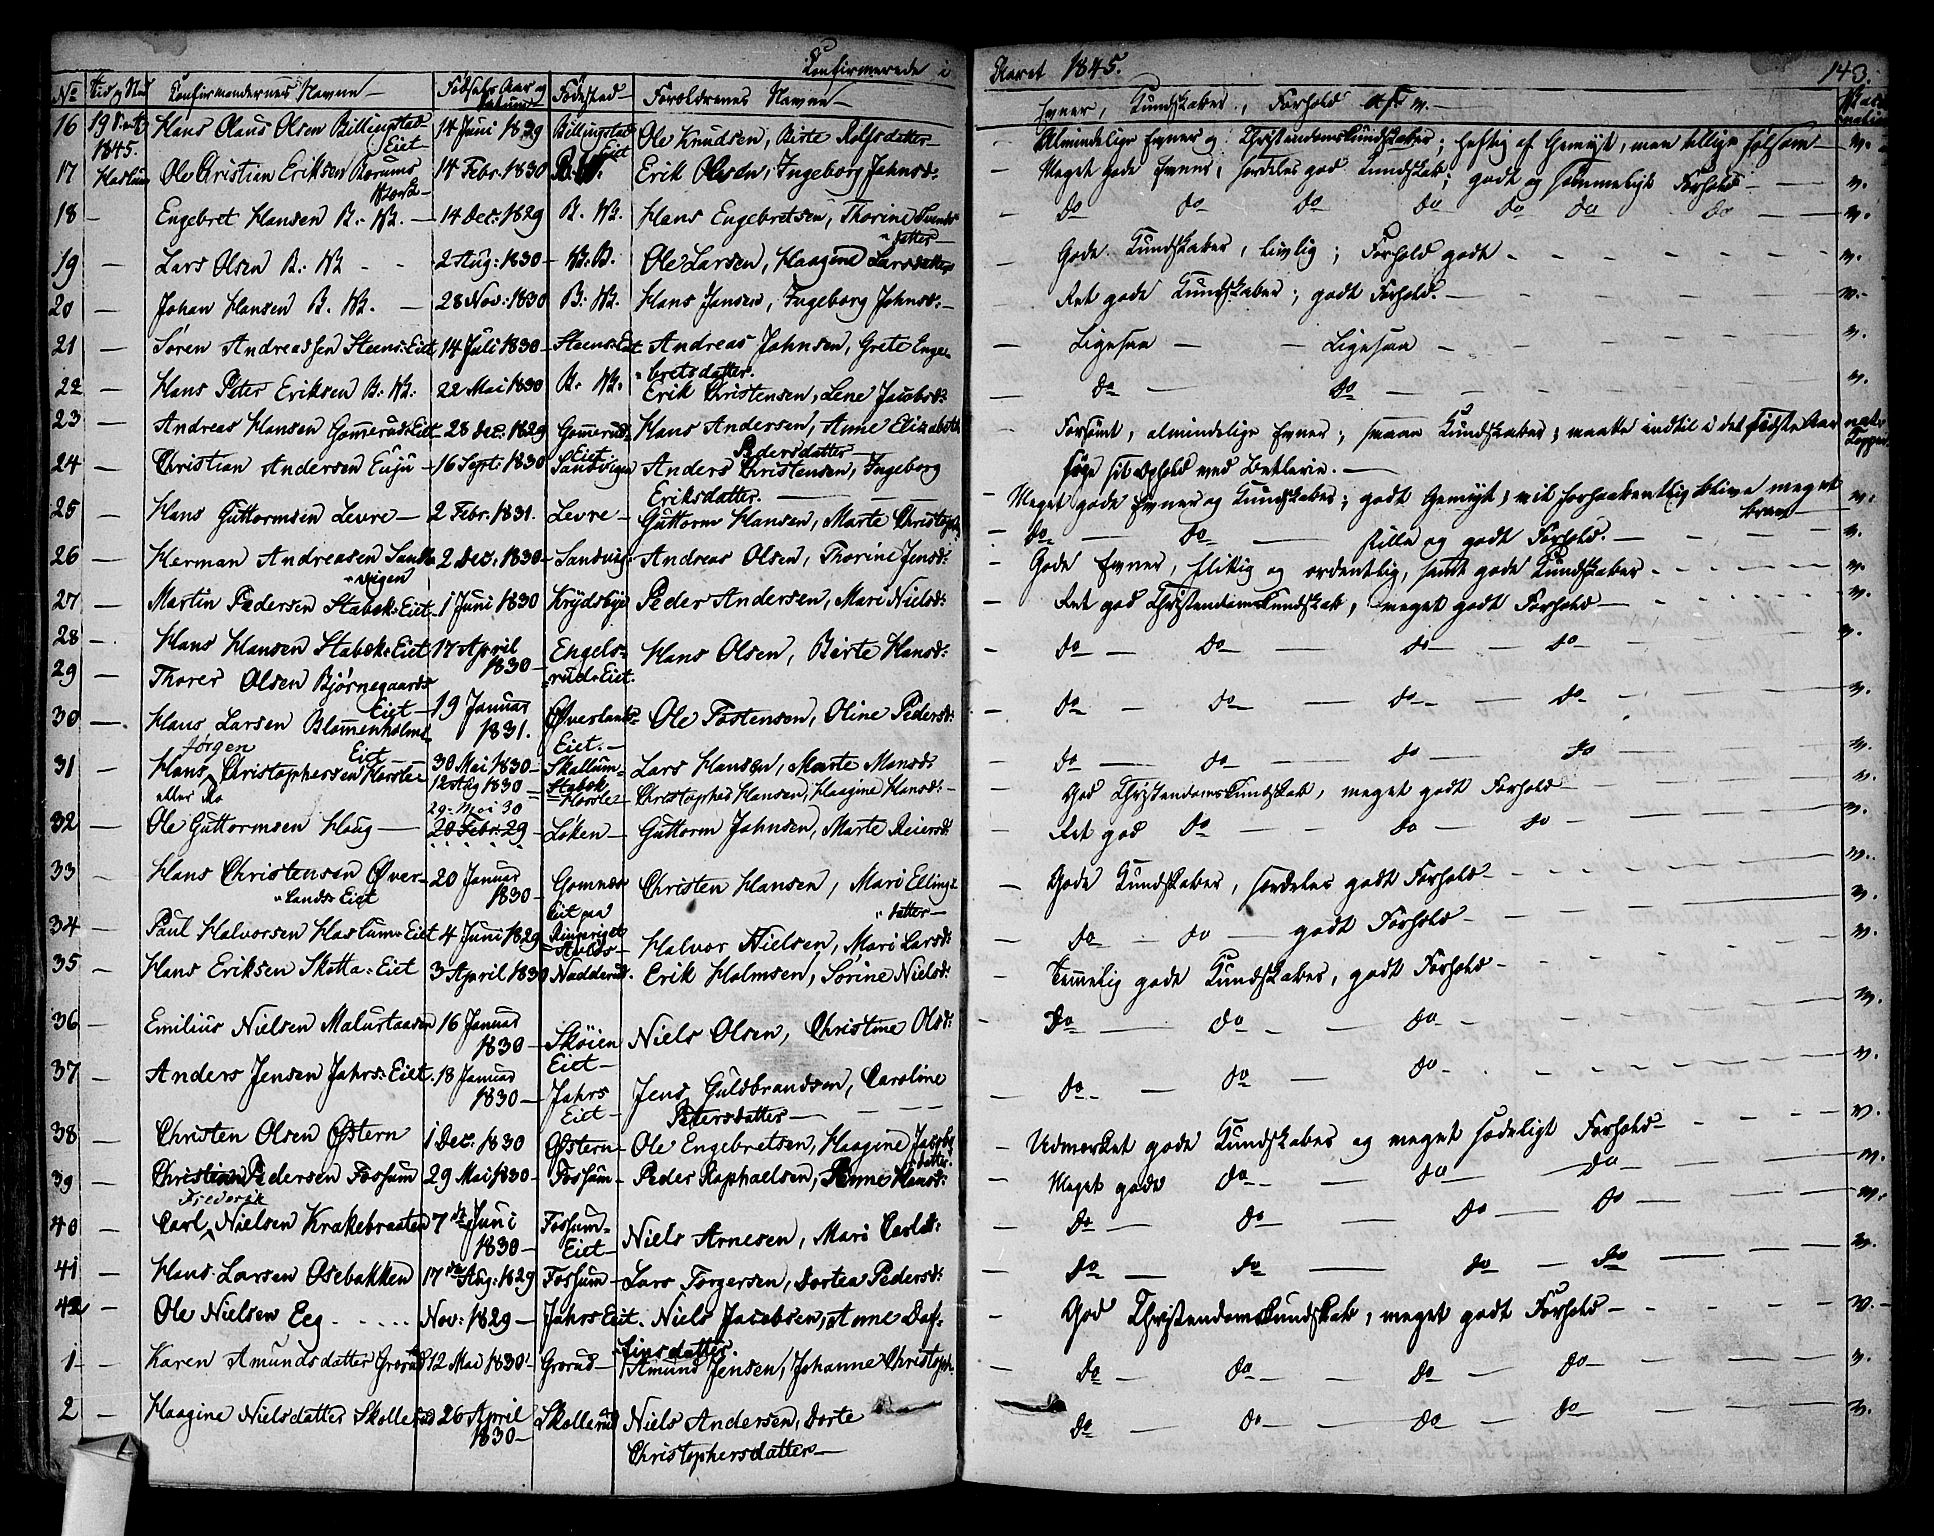 Konfirmerede i Aaret 1845. 143.
No Tid og Sted Konfirmandernes Navne Fødsels Aar og Datum Fødested Forældrenes Navne Evner, Kundskaber, Forhold
16 19 1845. Hans Olaus Olsen Billingstad Eiet 14 Juni 1829 Billingstad Eiet Ole Knudsen, Birte Rolfsdatter Almindelige Evner og Christendomskundskaber; heftig af Gemyt, men tillige følsom v.
17 Haslum Ole Christian Eriksen 14 Febr: 1830 Erik Olesen, Ingeborg Johnsd: Meget gode Evner, særdeles god Kundskab; godt og Forhold v.
18 Engebret Hansen B: W. 14 Dec: 1829 B. W. Hans Engebretsen, Thorine Svends datter do do do do do do do v.
19 Lars Olsen B: W. 2 Aug: 1830 W: B. Ole Larsen, Haagine Larsdatter Gode Kundskaber, livlig; Forhold godt v.
20 Johan Hansen B. W. 28 Nov: 1830 B: W. Hans Jansen, Ingeborg Johnsd: Ret gode Kundskaber; godt Forhold. v.
21 Søren Andreassen Steens Eiet 14 Juli 1830 Steens Eiet Andreas Johnsen, Grete Enge- bretsdatter. Ligesaa Ligesaa v.
22 Hans Peter Eriksen B: W: 22 Mai 1830 B: W: Erik Christensen, Lene Jacobsd: do do v.
23 Andreas Hansen Gommerud: Eiet 28 Dec: 1829 Gommerud Eiet Hans Andersen, Anne Elizabeth Pedersdatter Forsømt, almindelige Evner, smaae Kundskaber; maatte indtil i det sidste Aar søge sit Ophold ved Betlerie.
24 Christian Andersen Enju 16 Sept: 1830 Sandvigen Anders Christensen, Ingeborg Eriksdatter. Meget gode Evner og Kundskaber; godt Gemyt, vil forhaabentlig blive meget brav v.
25 Hans Guttormsen Levre 2 Febr: 1831. Levre Guttorm Hansen, Marte Christoph: do do stille og godt Forhold. v.
26 Herman Andreasen Sand- vigen 2 Dec: 1830 Sandvig: Andreas Olsen, Thorine Jensd: Gode Evner, flittig og ordentlig, samt gode Kundskaber v.
27 Martin Pedersen Stabek: Eiet 1 Juni 1830 Krydsbye Peder Andersen, Mari Nielsd: Ret god Christendomskundskab, meget godt Forhold v.
28 Hans Hansen Stabek: Eiet 17 April 1830 Engels- rud: Eiet. Hans Olsen, Birte Hansd: do do do do v.
29 Thorer Olsen Bjørnegaards Eiet 19 Januar 1831. Øverlands Eiet. Ole Tostensen, Oline Pedersd: do do do do v.
30 Hans Larsen Blommenholms Eiet 30 Mai 1830 Skallum Lars Hansen, Marte Hansd: do do do do v.
31 Hans Jørgen Christophersen Horsle eller Mo 12 Aug 1830 Stabek Horsle Christopher Hansen, Haagine Hansd: God Christendomskundskab, meget godt Forhold v.
32 Ole Guttormsen Haug 29 Mai 30 20 Febr: 29 Løken Guttorm Johnsen, Marte Reiersd: Ret god do do do v.
33 Hans Christensen Øver- lands: Eiet 20 Januar 1830 Gomnæs Eiet paa Ringerige Christen Hansen, Mari Ellings datter Gode Kundskaber, særdeles godt Forhold v.
34 Paul Halvorsen Haslum: Eiet 4 Juni 1829 Halvor Nielsen, Mari Larsd: do do godt Forhold v.
35 Hans Eriksen Skotta: Eiet 3 April 1830 Nadderud. Erik Holmsen, Sørine Nielsd: Temmelig gode Kundskaber, godt Forhold v.
36 Emilius Nielsen Malurtaasen 16 Januar 1830 Skøien Eiet Niels Olsen, Christine Olsd: do do do v.
37 Anders Jensen Jahrs: Eiet. 18 Januar 1830 Jahrs Eiet Jens Guldbrandsen, Caroline Petersdatter do do do v.
38 Christen Olsen Østern 1 Dec: 1830 Østern Ole Engebretsen, Haagine Jacobs datter Udmærket gode Kundskaber og meget sædeligt Forhold v.
39 Christian Pedersen Fossum 29 Mai 1830 Fossum Peder Raphaelsen, Anne Hansd: Meget gode do do do v.
40 Carl Frederik Nielsen Krakebraaten 7de Juni 1830 Fossum- Eiet Niels Arnesen, Mari Carlsd: do do do do v.
41 Hans Larsen Osebakken 17de Aug: 1829 Fossum Lars Torgersen, Dortea Pedersd: do do do do v.
42 Ole Nielsen Eeg Nov: 1829 Jahrs Eiet. Niels Jacobsen, Anne Daf- finsdatter. God Christendomskundskab, meget godt Forhold v.
1 Karen Amundsdatter Grorud 12 Mai 1830 Grorud Amund Jensen, Johanne Christoph: do do do do v.
2 Haagine Nielsdatter Skollerud 26 April 1830 Skollerud Niels Andersen, Dorte Christophersdatter do do do do v.